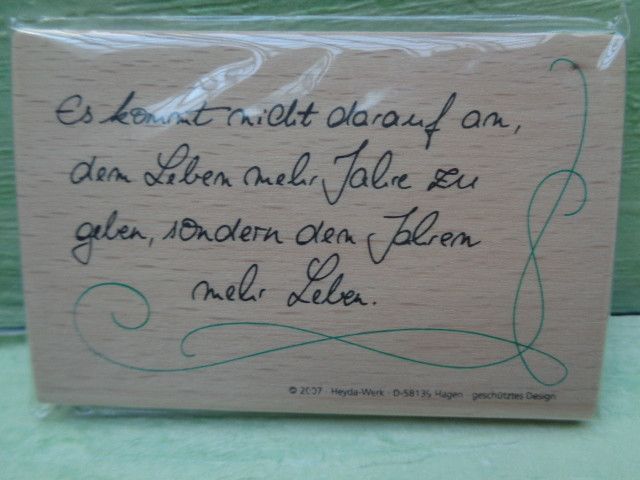 Es kommt nicht darauf an,
dem Leben mehr Jahre zu
geben, sondern den Jahren
mehr Leben.
© 2007 · Heyda-Werk · D-58135 Hagen · geschütztes Design